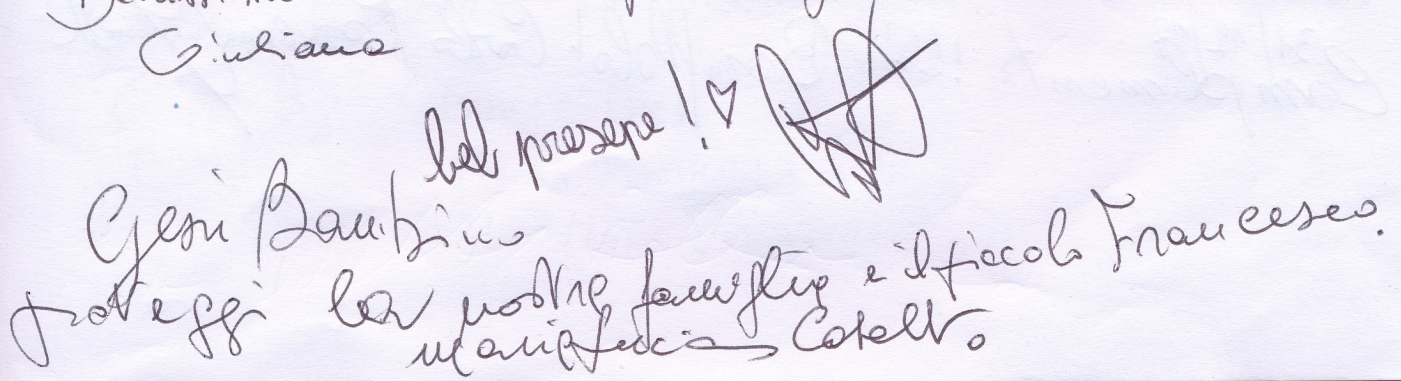 Giuliana
bel presepe! ♡
Gesù Bambino
proteggi la nostra famiglia e il piccolo Francesco.
Maria Lucia